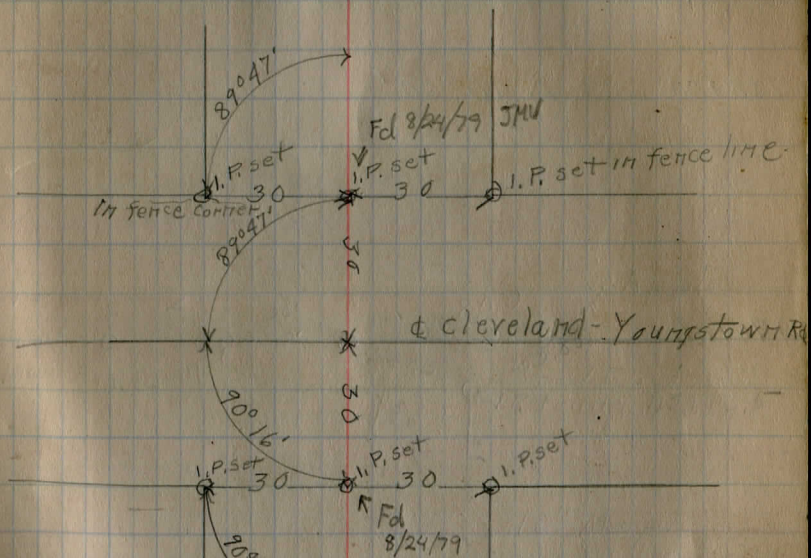 89°47'
Fd 8/24/79 JMV
I.P. set
I.P. set
I.P. set in fence line.
30
30
In fence corner
89°47'
30
¢ Cleveland-Youngstown Rd
30
90° 16'
I.P. set
I.P. set
I.P. set
30
30
Fd
8/24/79
90°